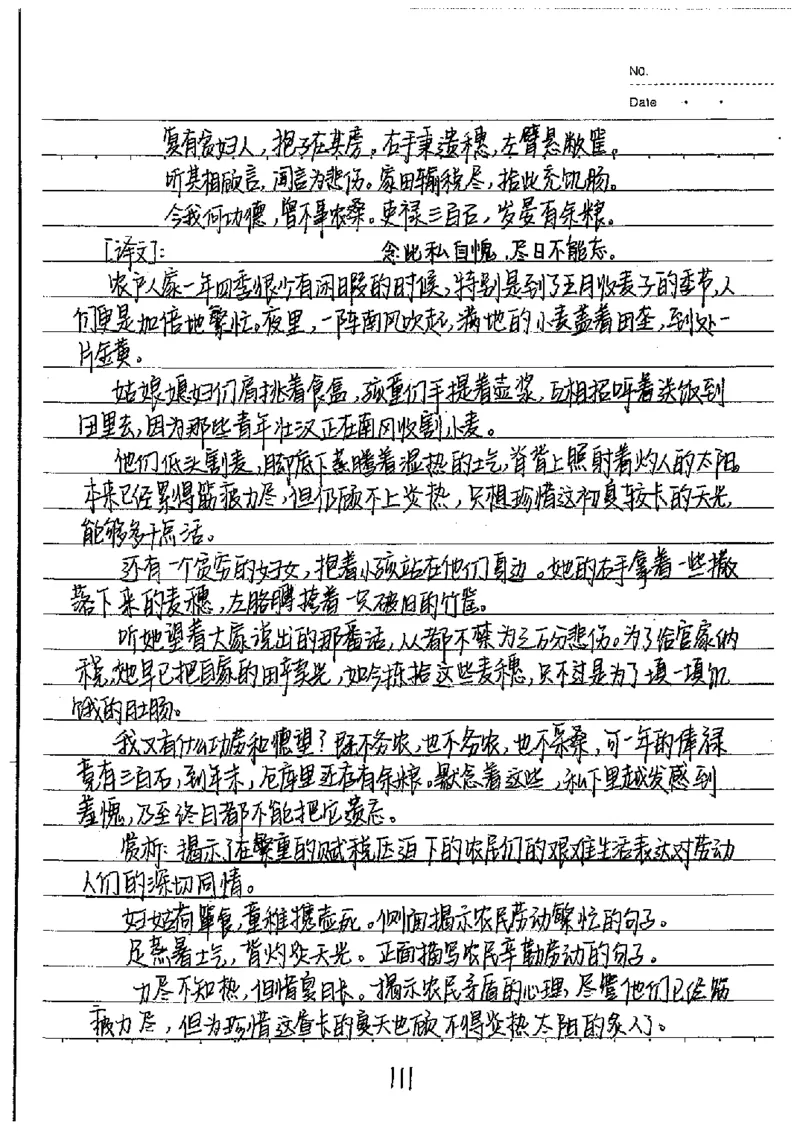 No.
Date
复有贫妇人，抱子在其旁。右手秉遗穗，左臂悬敝筐。
听其相顾言，闻言为悲伤。家田输税尽，拾此充饥肠。
今我何功德，曾不事农桑。吏禄三百石，岁晏有余粮。
[译文]： 念此私自愧，尽日不能忘。
农户人家一年四季很少有闲暇的时候，特别是到了五月收麦子的季节，人
们便是加倍地繁忙。夜里，一阵南风吹起，满地的小麦盖着田垄，到处一
片金黄。
姑娘媳妇们肩挑着食盒，孩童们手提着壶浆，互相招呼着送饭到
田里去，因为那些青年壮汉正在南冈收割小麦。
他们低头割麦，脚底下蒸腾着湿热的土气，脊背上照射着灼人的太阳。
本来已经累得筋疲力尽，但仍顾不上炎热，只想珍惜这初夏较长的天光，
能够多干点活。
还有一个贫穷的妇女，抱着小孩站在他们身边。她的右手拿着一些撒
落下来的麦穗，左胳膊挎着一只破旧的竹筐。
听她望着大家说出的那番话，人都不禁为三万分悲伤。为了给官家纳
税，她早已把自家的田辛卖光，如今拣拾这些麦穗，只不过是为了填一填饥
饿的肚肠。
我又有什么功劳和德望？既不务农，也不务农，也不采桑，可一年的俸禄
竟有三百石，到年末，仓库里还存有余粮。默念着这些，私下里越发感到
羞愧，乃至终日都不能把它遗忘。
赏析：揭示了在繁重的赋税压迫下的农居们的艰难生活表达对劳动
人们的深切同情。
妇姑荷箪食，童稚携壶死。侧面揭示农民劳动繁忙的句子。
足蒸暑土气，背灼炎天光。正面描写农民辛勤劳动的句子。
力尽不知热，但惜夏日长。揭示农民矛盾的心理，尽管他们已经筋
疲力尽，但为珍惜这昼长的夏天也顾不得炎热太阳的炙人了。
111